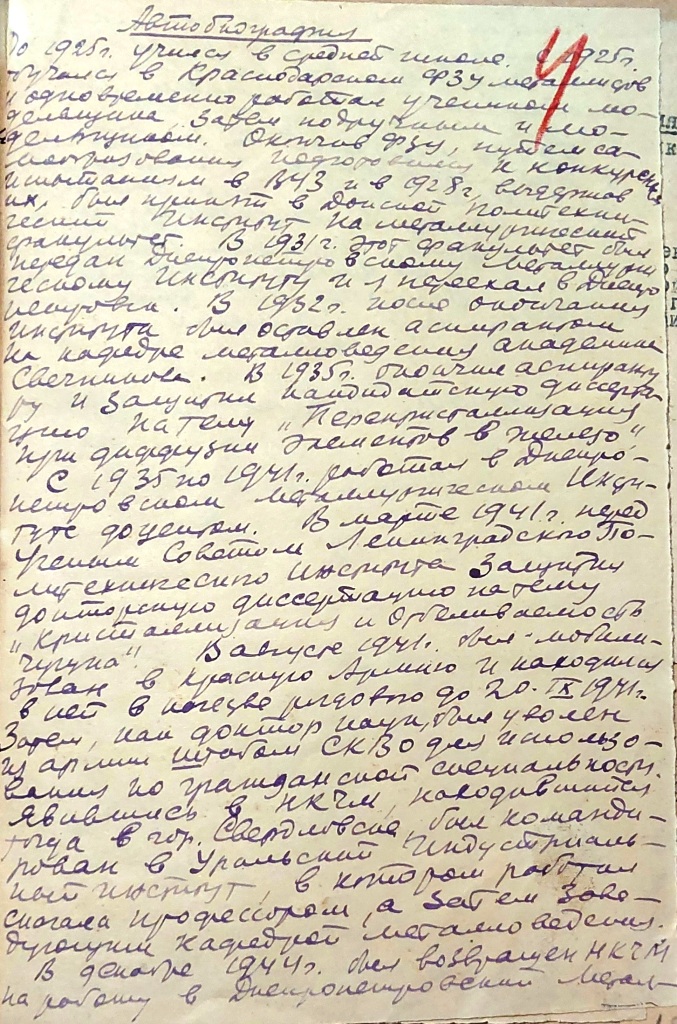 Автобиография
До 1925г. учился в средней школе. С 1925г.
обучался в Краснодарском ФЗУ металлистов
и одновременно работал учеником мо-
дельщика, затем подручным и мо-
дельщиком. Окончив ФЗУ, путем са-
мообразования подготовился к конкурсным
испытаниям в ВУЗ и в 1928г, выдержав
их, был принят в Донской политехни-
ческий Институт на металлургический
факультет. В 1931г. этот факультет был
передан Днепропетровскому Металлурги
ческому Институту и я переехал в Днепро
петровск. В 1932г. после окончания
Института был оставлен аспирантом
на кафедре металловедения академика
Свечникова. В 1935г. окончил аспиранту
ру и защитил кандидатскую диссерта-
цию на тему „Перекристаллизация
при диффузии элементов в железо"
С 1935 по 1941г. работал в Днепро-
петровском металлургическом Инсти-
туте доцентом. В марте 1941г. перед
Ученым Советом Ленинградского По-
литехнического Института защитил
докторскую диссертацию на тему
„Кристаллизация и отбеливаемость
чугуна". В августе 1941г. был мобили-
зован в Красную Армию и находился
в ней в качестве рядового до 20.IX 1941г.
Затем, как доктор наук, был уволен
из армии штабом СКВО для использо-
вания по гражданской специальности.
Явившись в НКЧМ, находившийся
тогда в гор. Свердловске, был команди-
рован в Уральский Индустриаль-
ный институт, в котором работал
сначала профессором, а затем Заве-
дующим кафедрой металловедения.
В декабре 1944г. был возвращен НКЧМ
на работу в Днепропетровский Метал-